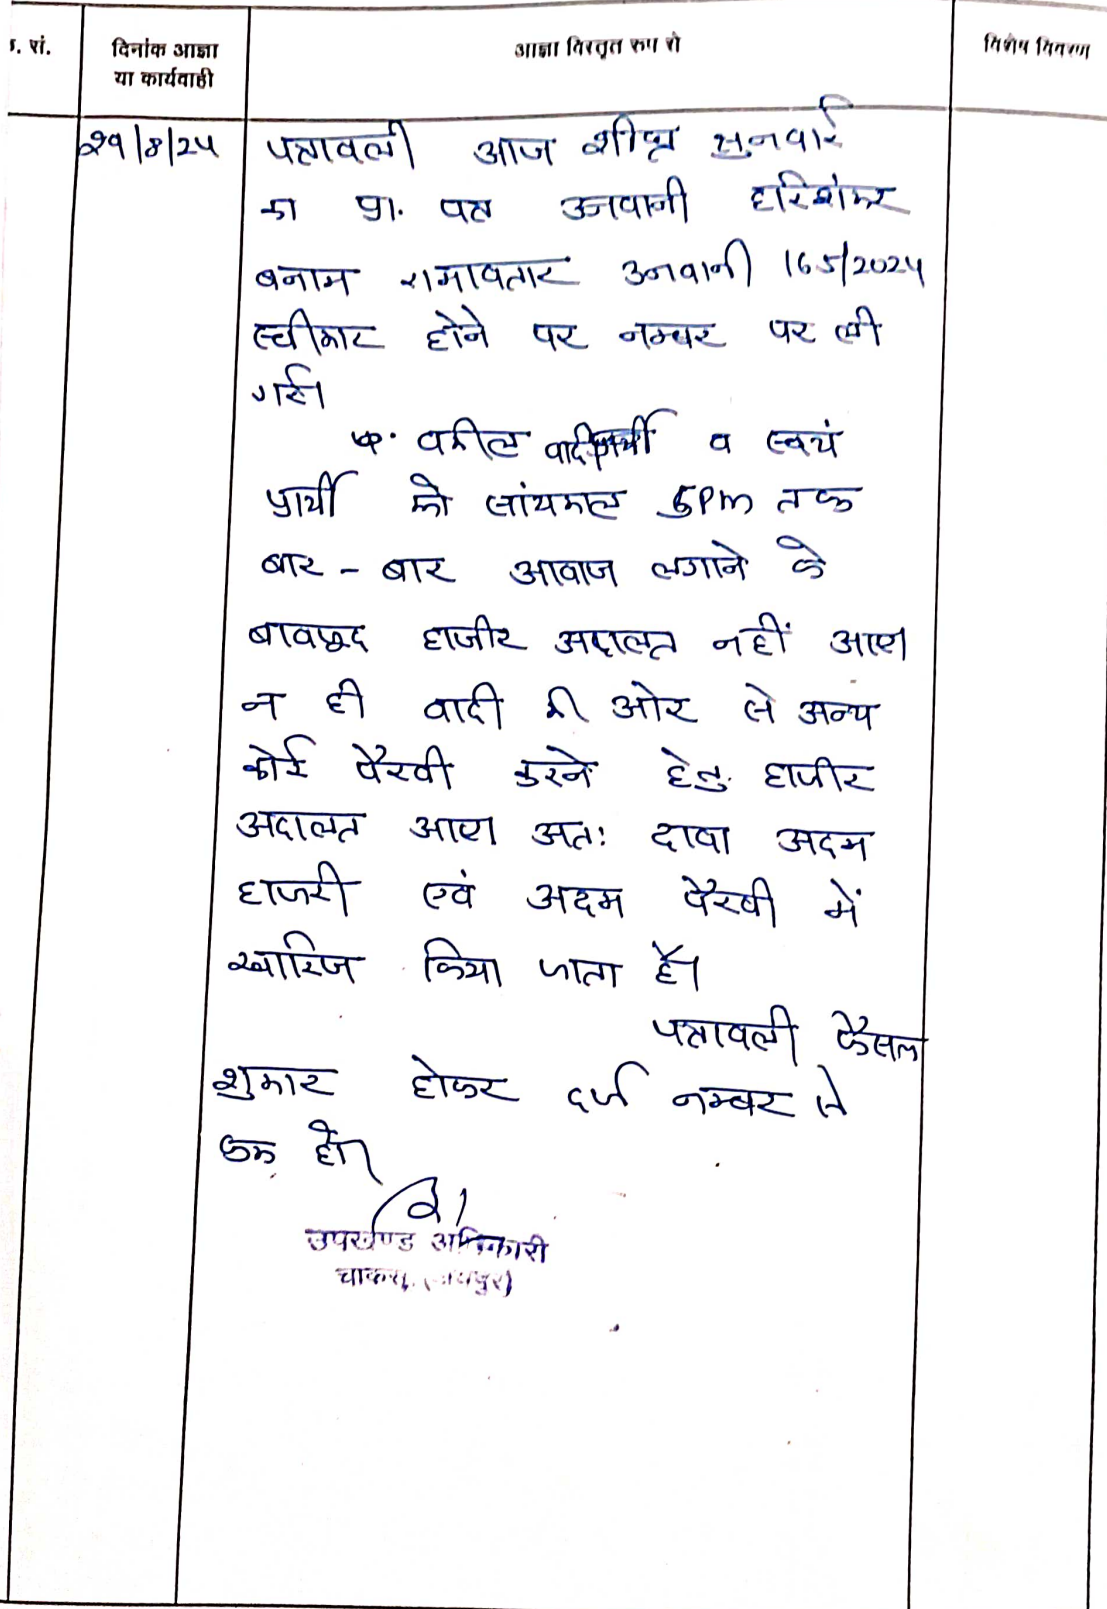 . सं.
दिनांक आज्ञा
या कार्यवाही
आज्ञा विस्तृत रूप से
विशेष विवरण
29/8/25 पत्रावली आज शीघ्र सुनवाई
का प्रा. पत्र उनवानी हरिशंकर
बनाम रामावतार उनवानी 165/2025
स्वीकार होने पर नम्बर पर ली
गई।
वकील वादी/प्रार्थी व स्वयं
प्रार्थी को सांयकाल 5PM तक
बार - बार आवाज लगाने के
बावजूद हाजीर अदालत नहीं आए।
न ही वादी की ओर से अन्य
कोई पैरवी करने हेतु हाजीर
अदालत आए। अतः दावा अदम
हाजरी एवं अदम पैरवी में
खारिज किया जाता है।
पत्रावली फैसल
शुमार होकर दर्ज नम्बर से
कम हो।
उपखण्ड अधिकारी
चाकसू (जयपुर)